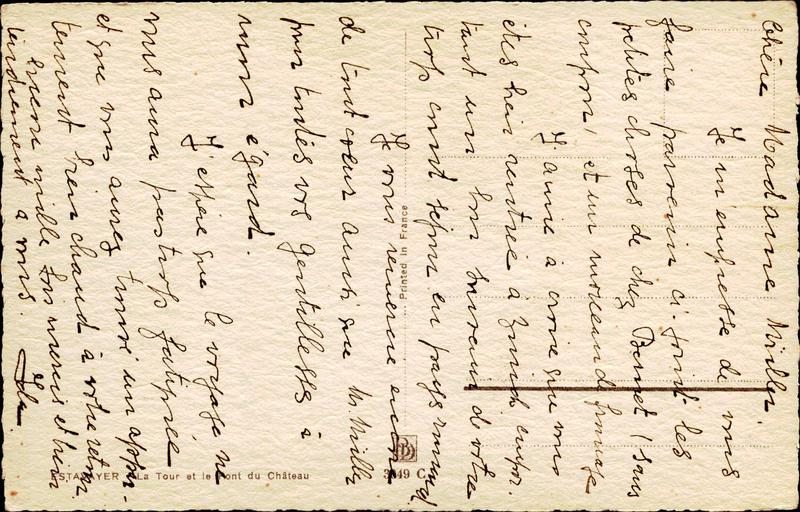 Chère Madame Miller,
Je m'empresse de vous
faire parvenir ci-joint les
petites choses de chez Bonnet (sans
coupons, et un morceau de fromage
J'aime à croire que vous
êtes bien rentrée à Zurich
tout un bon souvenir de votre
trop court séjour en pays romand
Je vous remercie encore
de tout coeur ainsi que Mr. Miller
pour toutes vos gentillesses à
mon égard.
J'espère que le voyage ne
vous aura pas trop fatiguée
et que vous aurez trouvé un appar-
tement bien chaud à votre retour
Encore mille bons mercis et bien
tendrement à vous.
Printed in France
ESTAVAYER - La Tour et le Pont du Château
3849 C